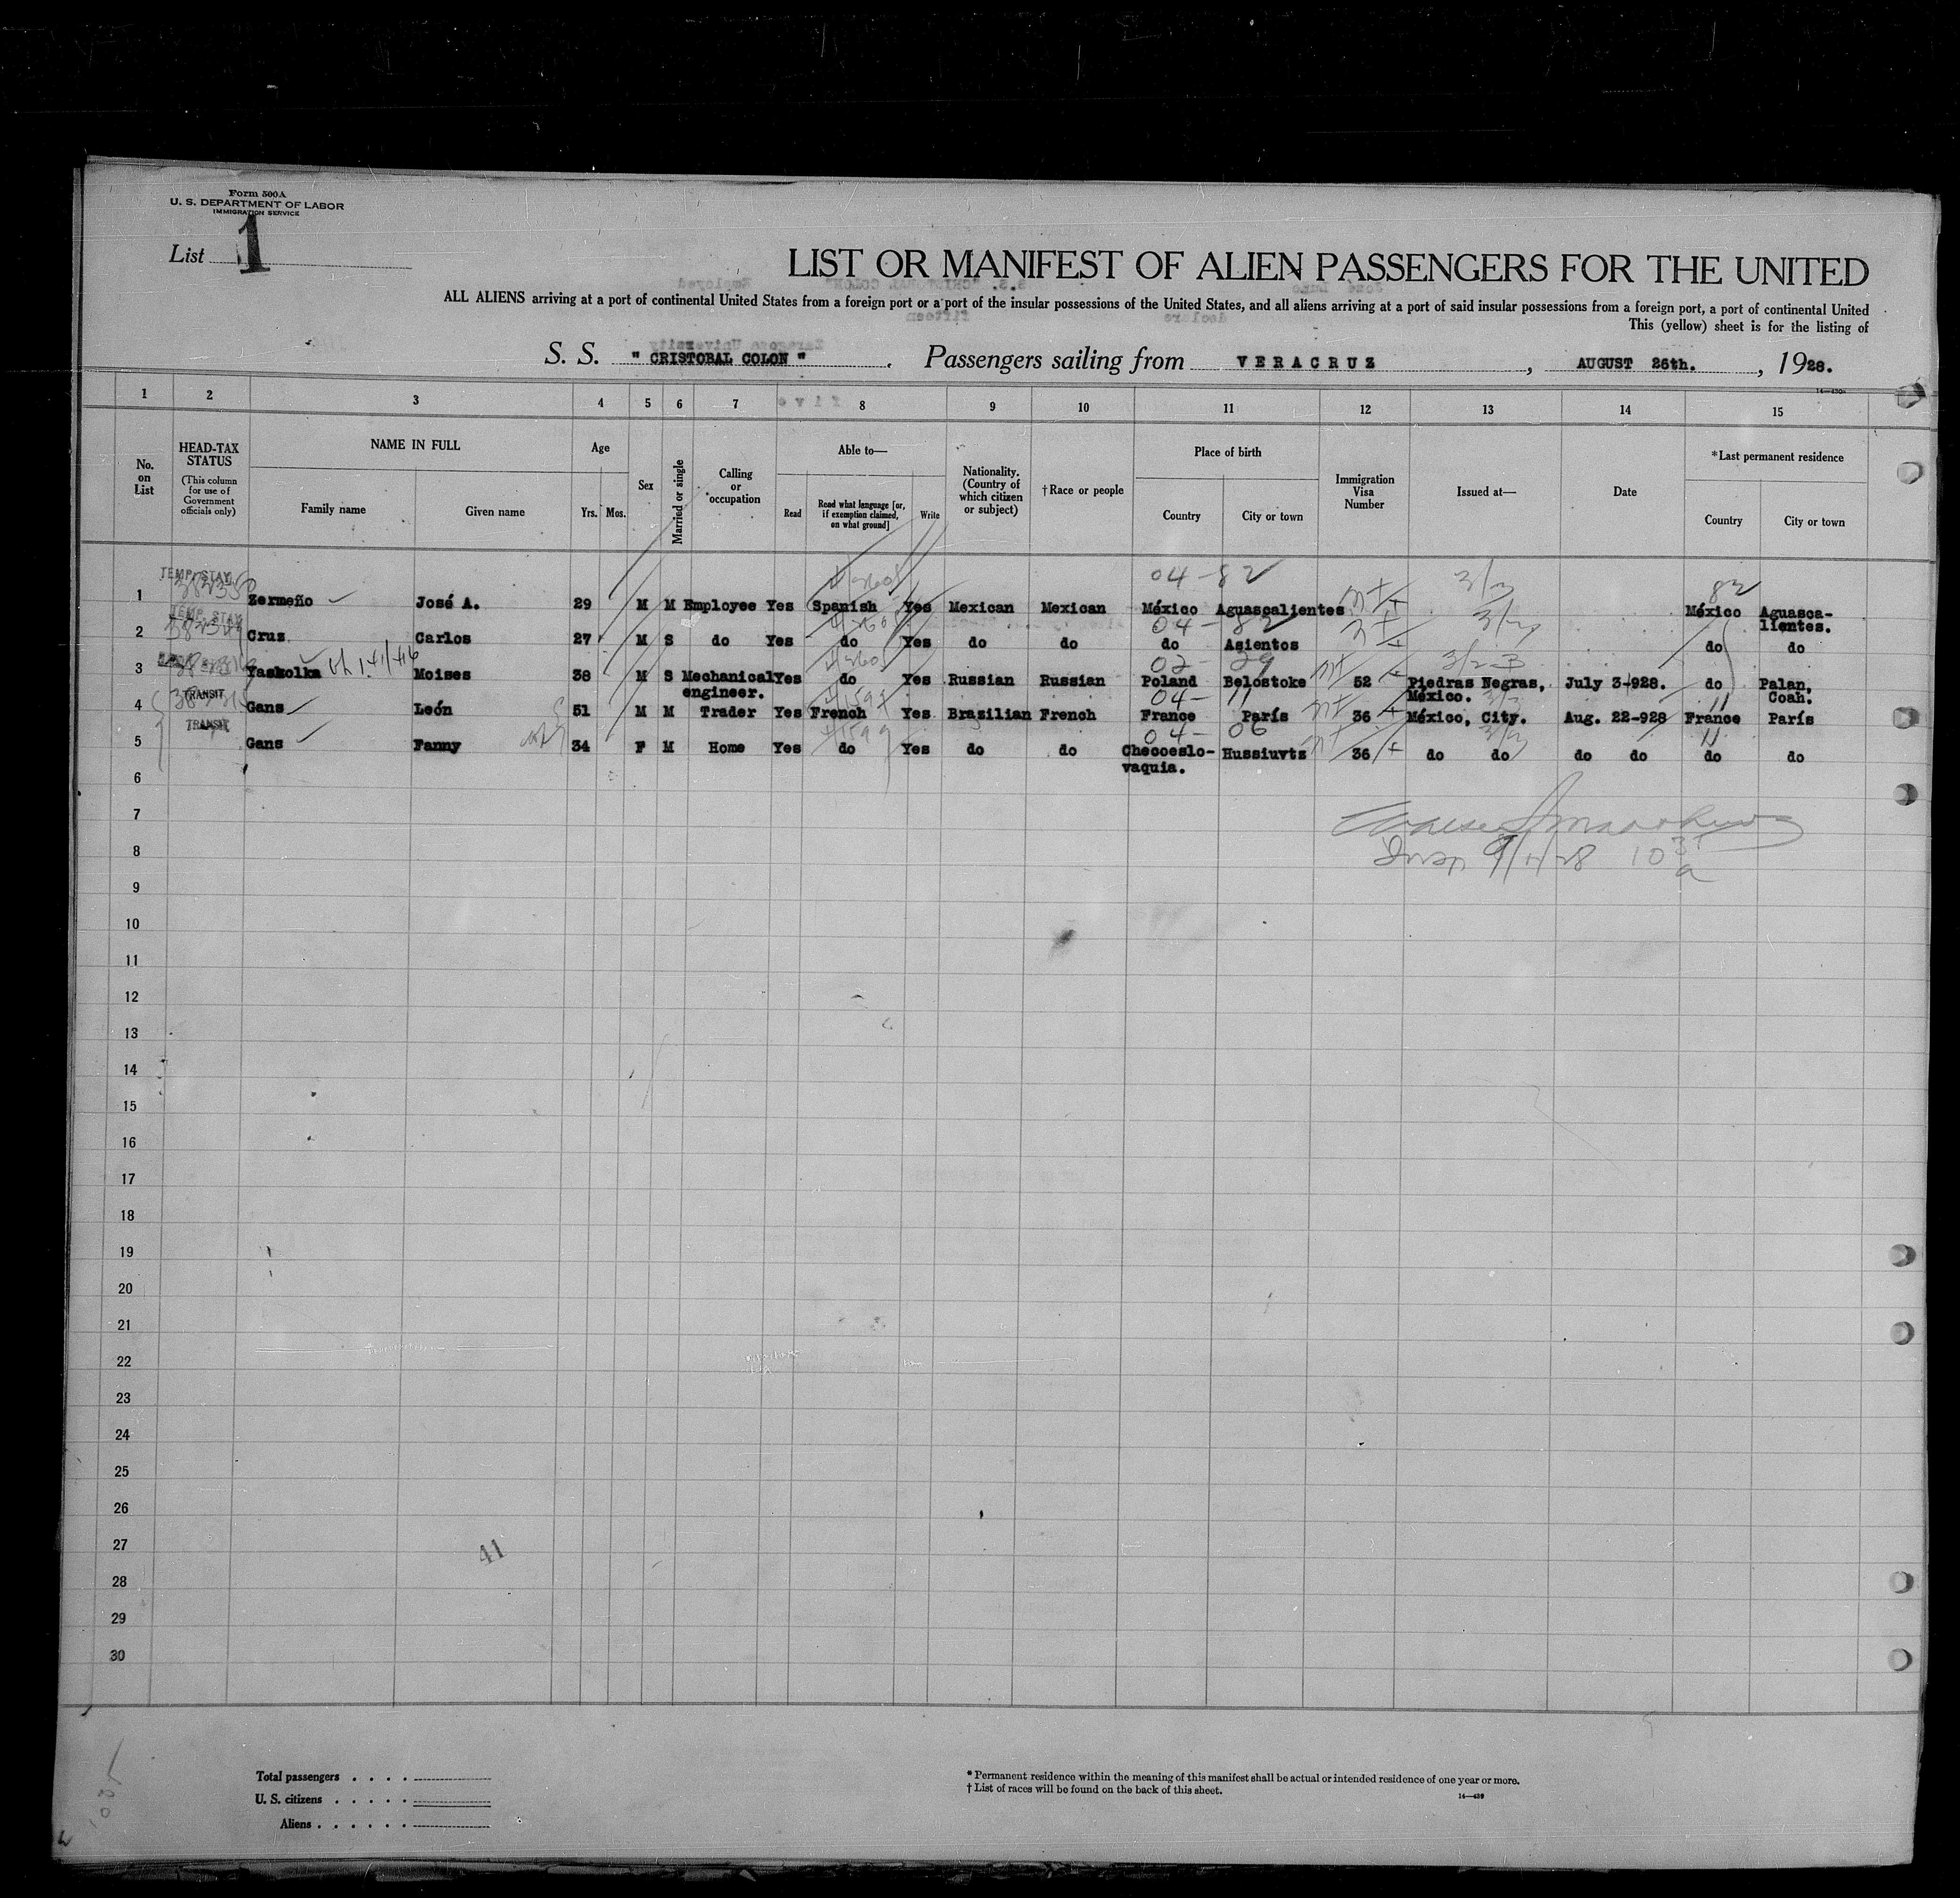 Form 500A
U. S. DEPARTMENT OF LABOR
IMMIGRATION SERVICE
List 1
LIST OR MANIFEST OF ALIEN PASSENGERS FOR THE UNITED
ALL ALIENS arriving at a port of continental United States from a foreign port or a port of the insular possessions of the United States, and all aliens arriving at a port of said insular possessions from a foreign port, a port of continental United
This (yellow) sheet is for the listing of
S. S. " CRISTOBAL COLON " . Passengers sailing from VERACRUZ , AUGUST 26th. , 1928.
1 2 3 4 5 6 7 8 9 10 11 12 13 14 15
No. on List
HEAD-TAX STATUS
(This column for use of Government officials only)
NAME IN FULL
Family name Given name
Age
Yrs. Mos.
Sex
Married or single
Calling or occupation
Able to—
Read
Read what language [or, if exemption claimed, on what ground]
Write
Nationality. (Country of which citizen or subject)
†Race or people
Place of birth
Country City or town
Immigration Visa Number
Issued at—
Date
*Last permanent residence
Country City or town
TEMP. STAY 04-82 3/3 82
1 Zermeño José A. 29 M M Employee Yes Spanish Yes Mexican Mexican México Aguascalientes México Aguasca-
lientes.
TEMP. STAY 04-82
2 Cruz Carlos 27 M S do Yes do Yes do do do Asientos do do
02-29
3 Yaskolka Moises 38 M S Mechanical Yes do Yes Russian Russian Poland Belostoke 52 Piedras Negras, July 3-928. do Palan,
engineer. México. Coah.
TRANSIT 04-11 11
4 Gans León 51 M M Trader Yes French Yes Brazilian French France París 36 México, City. Aug. 22-928 France París
TRANSIT 04-06 11
5 Gans Fanny 34 F M Home Yes do Yes do do Checoeslo- Hussiuvtz 36 do do do do do do
vaquia.
6
7
8
9
10
11
12
13
14
15
16
17
18
19
20
21
22
23
24
25
26
27
41
28
29
30
Total passengers . . . .
U. S. citizens . . . . .
Aliens . . . . . .
* Permanent residence within the meaning of this manifest shall be actual or intended residence of one year or more.
† List of races will be found on the back of this sheet.
14—430